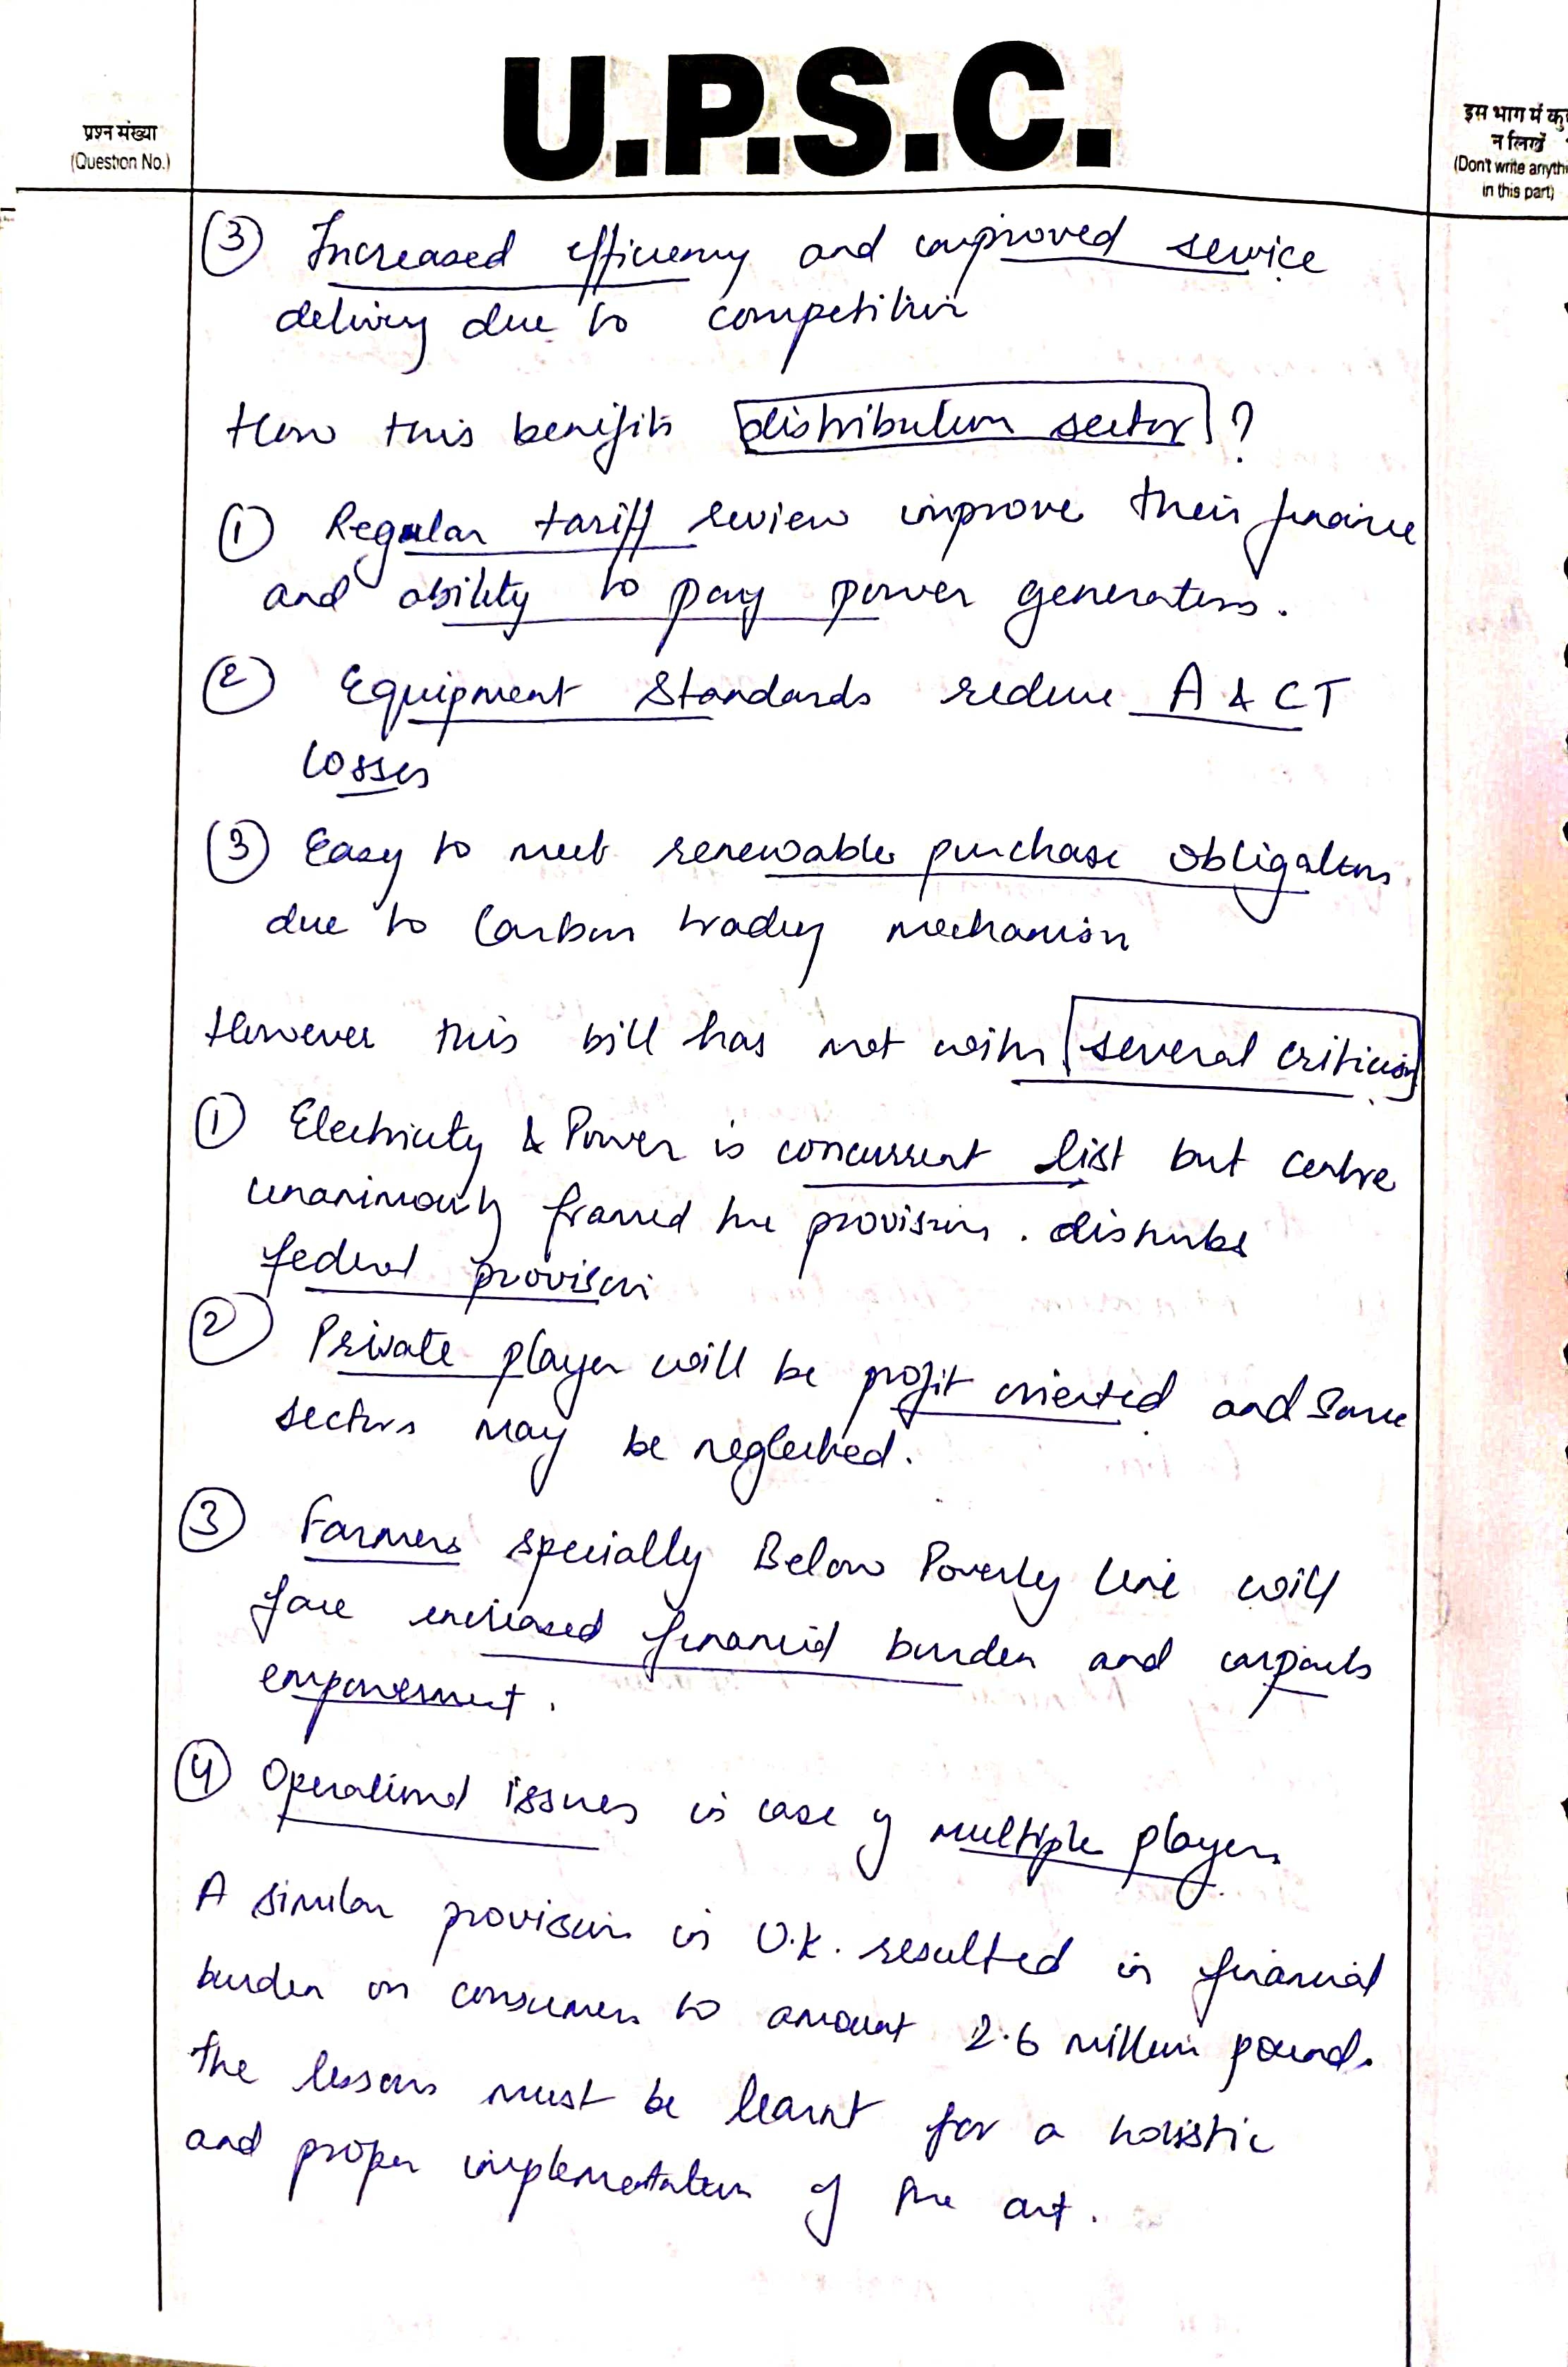 U.P.S.C.
प्रश्न संख्या
(Question No.)
इस भाग में कु
न लिखें
(Don't write anythi
in this part)
(3) Increased efficiency and improved service
delivery due to competition
How this benefits distribution sector ?
(1) Regular tariff review improve their finance
and ability to pay power generators.
(2) Equipment Standards reduce A & CT
losses
(3) Easy to meet renewable purchase obligations
due to Carbon trading mechanism
However this bill has met with several criticism
(1) Electricity & Power is concurrent list but centre
unanimously framed the provisions. disturbs
federal provision
(2) Private player will be profit oriented and some
sectors may be neglected.
(3) Farmers specially Below Poverty line will
face increased financial burden and impacts
empowerment.
(4) Operational issues in case of multiple players
A similar provision in U.K. resulted in financial
burden on consumers to amount 2.6 million pound.
The lessons must be learnt for a holistic
and proper implementation of the act.